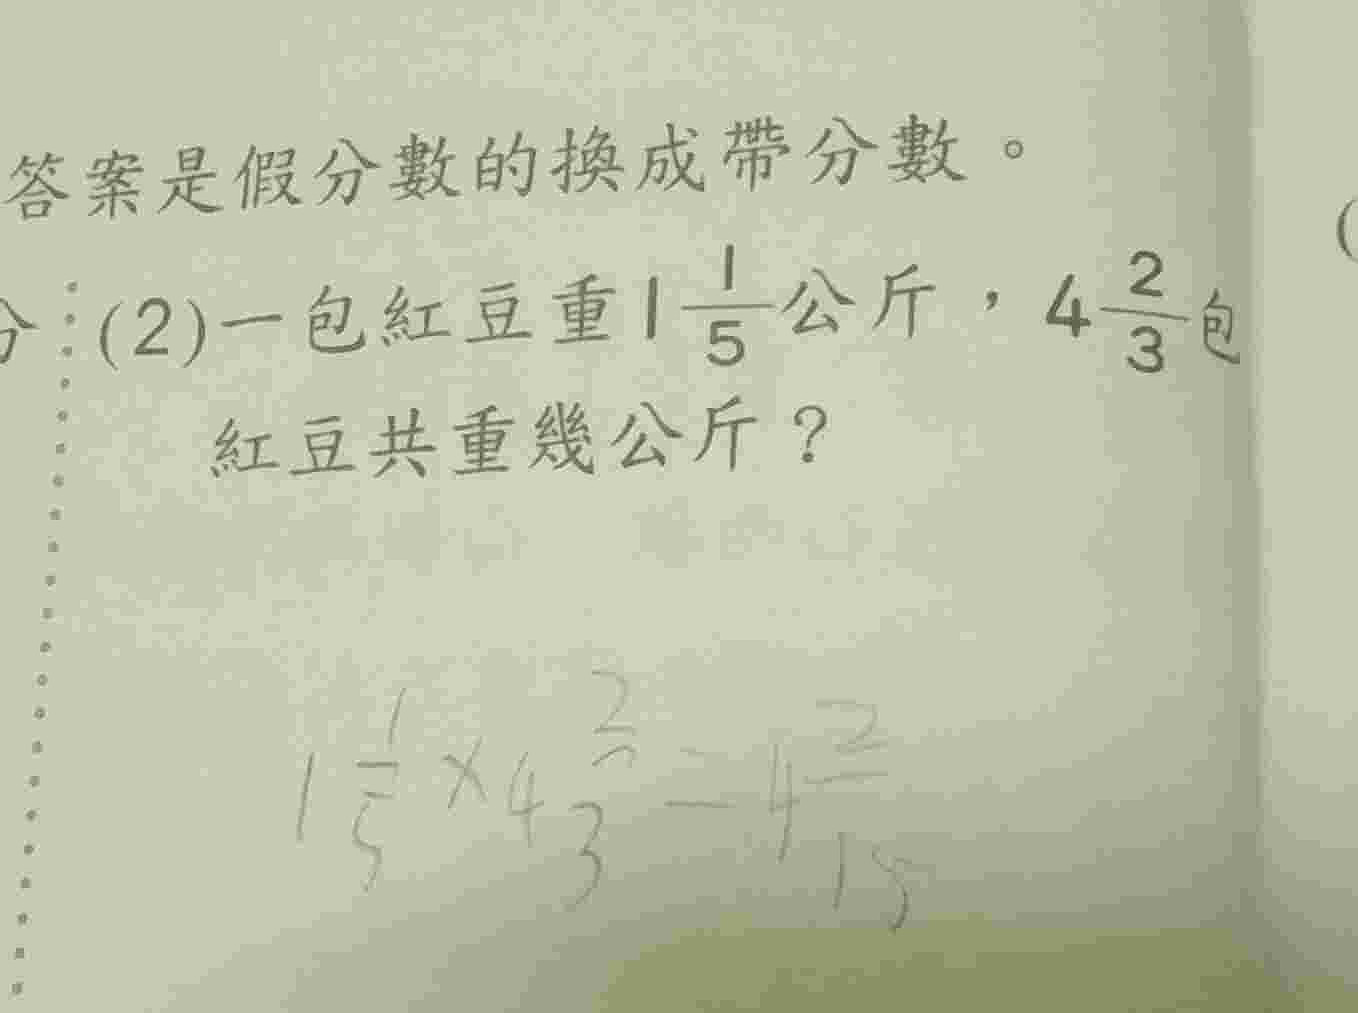 答案是假分數的換成帶分數。
分 (2)一包紅豆重1 1/5公斤，4 2/3包
紅豆共重幾公斤？
1 1/5 × 4 2/3 = 4 2/15
(